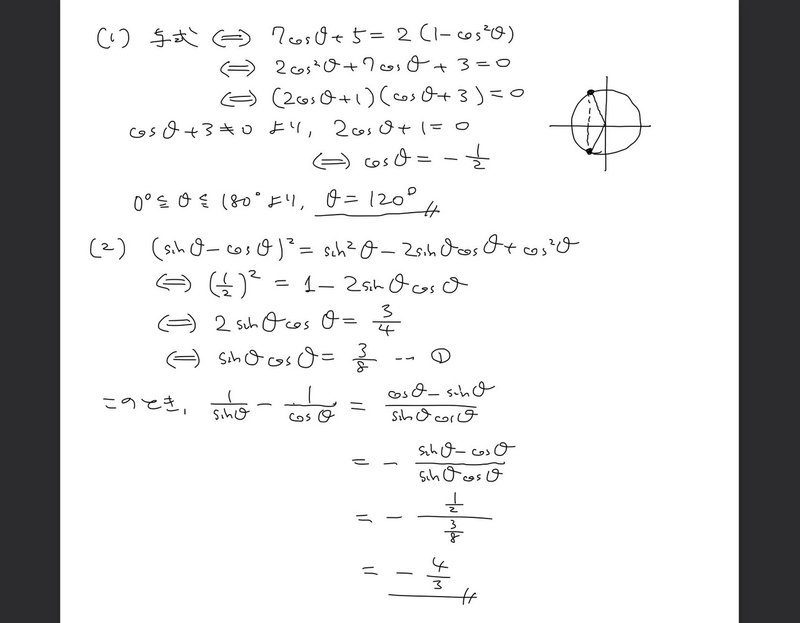 (1) 与式 ⇔ 7cosθ+5=2(1-cos²θ)
⇔ 2cos²θ+7cosθ+3=0
⇔ (2cosθ+1)(cosθ+3)=0
cosθ+3≠0 より, 2cosθ+1=0
⇔ cosθ=-1/2
0°≦θ≦180°より, θ=120°
(2) (sinθ-cosθ)²=sin²θ-2sinθcosθ+cos²θ
⇔ (1/2)²=1-2sinθcosθ
⇔ 2sinθcosθ=3/4
⇔ sinθcosθ=3/8 … ①
このとき, 1/sinθ - 1/cosθ = (cosθ-sinθ)/(sinθcosθ)
= - (sinθ-cosθ)/(sinθcosθ)
= - (1/2)/(3/8)
= - 4/3